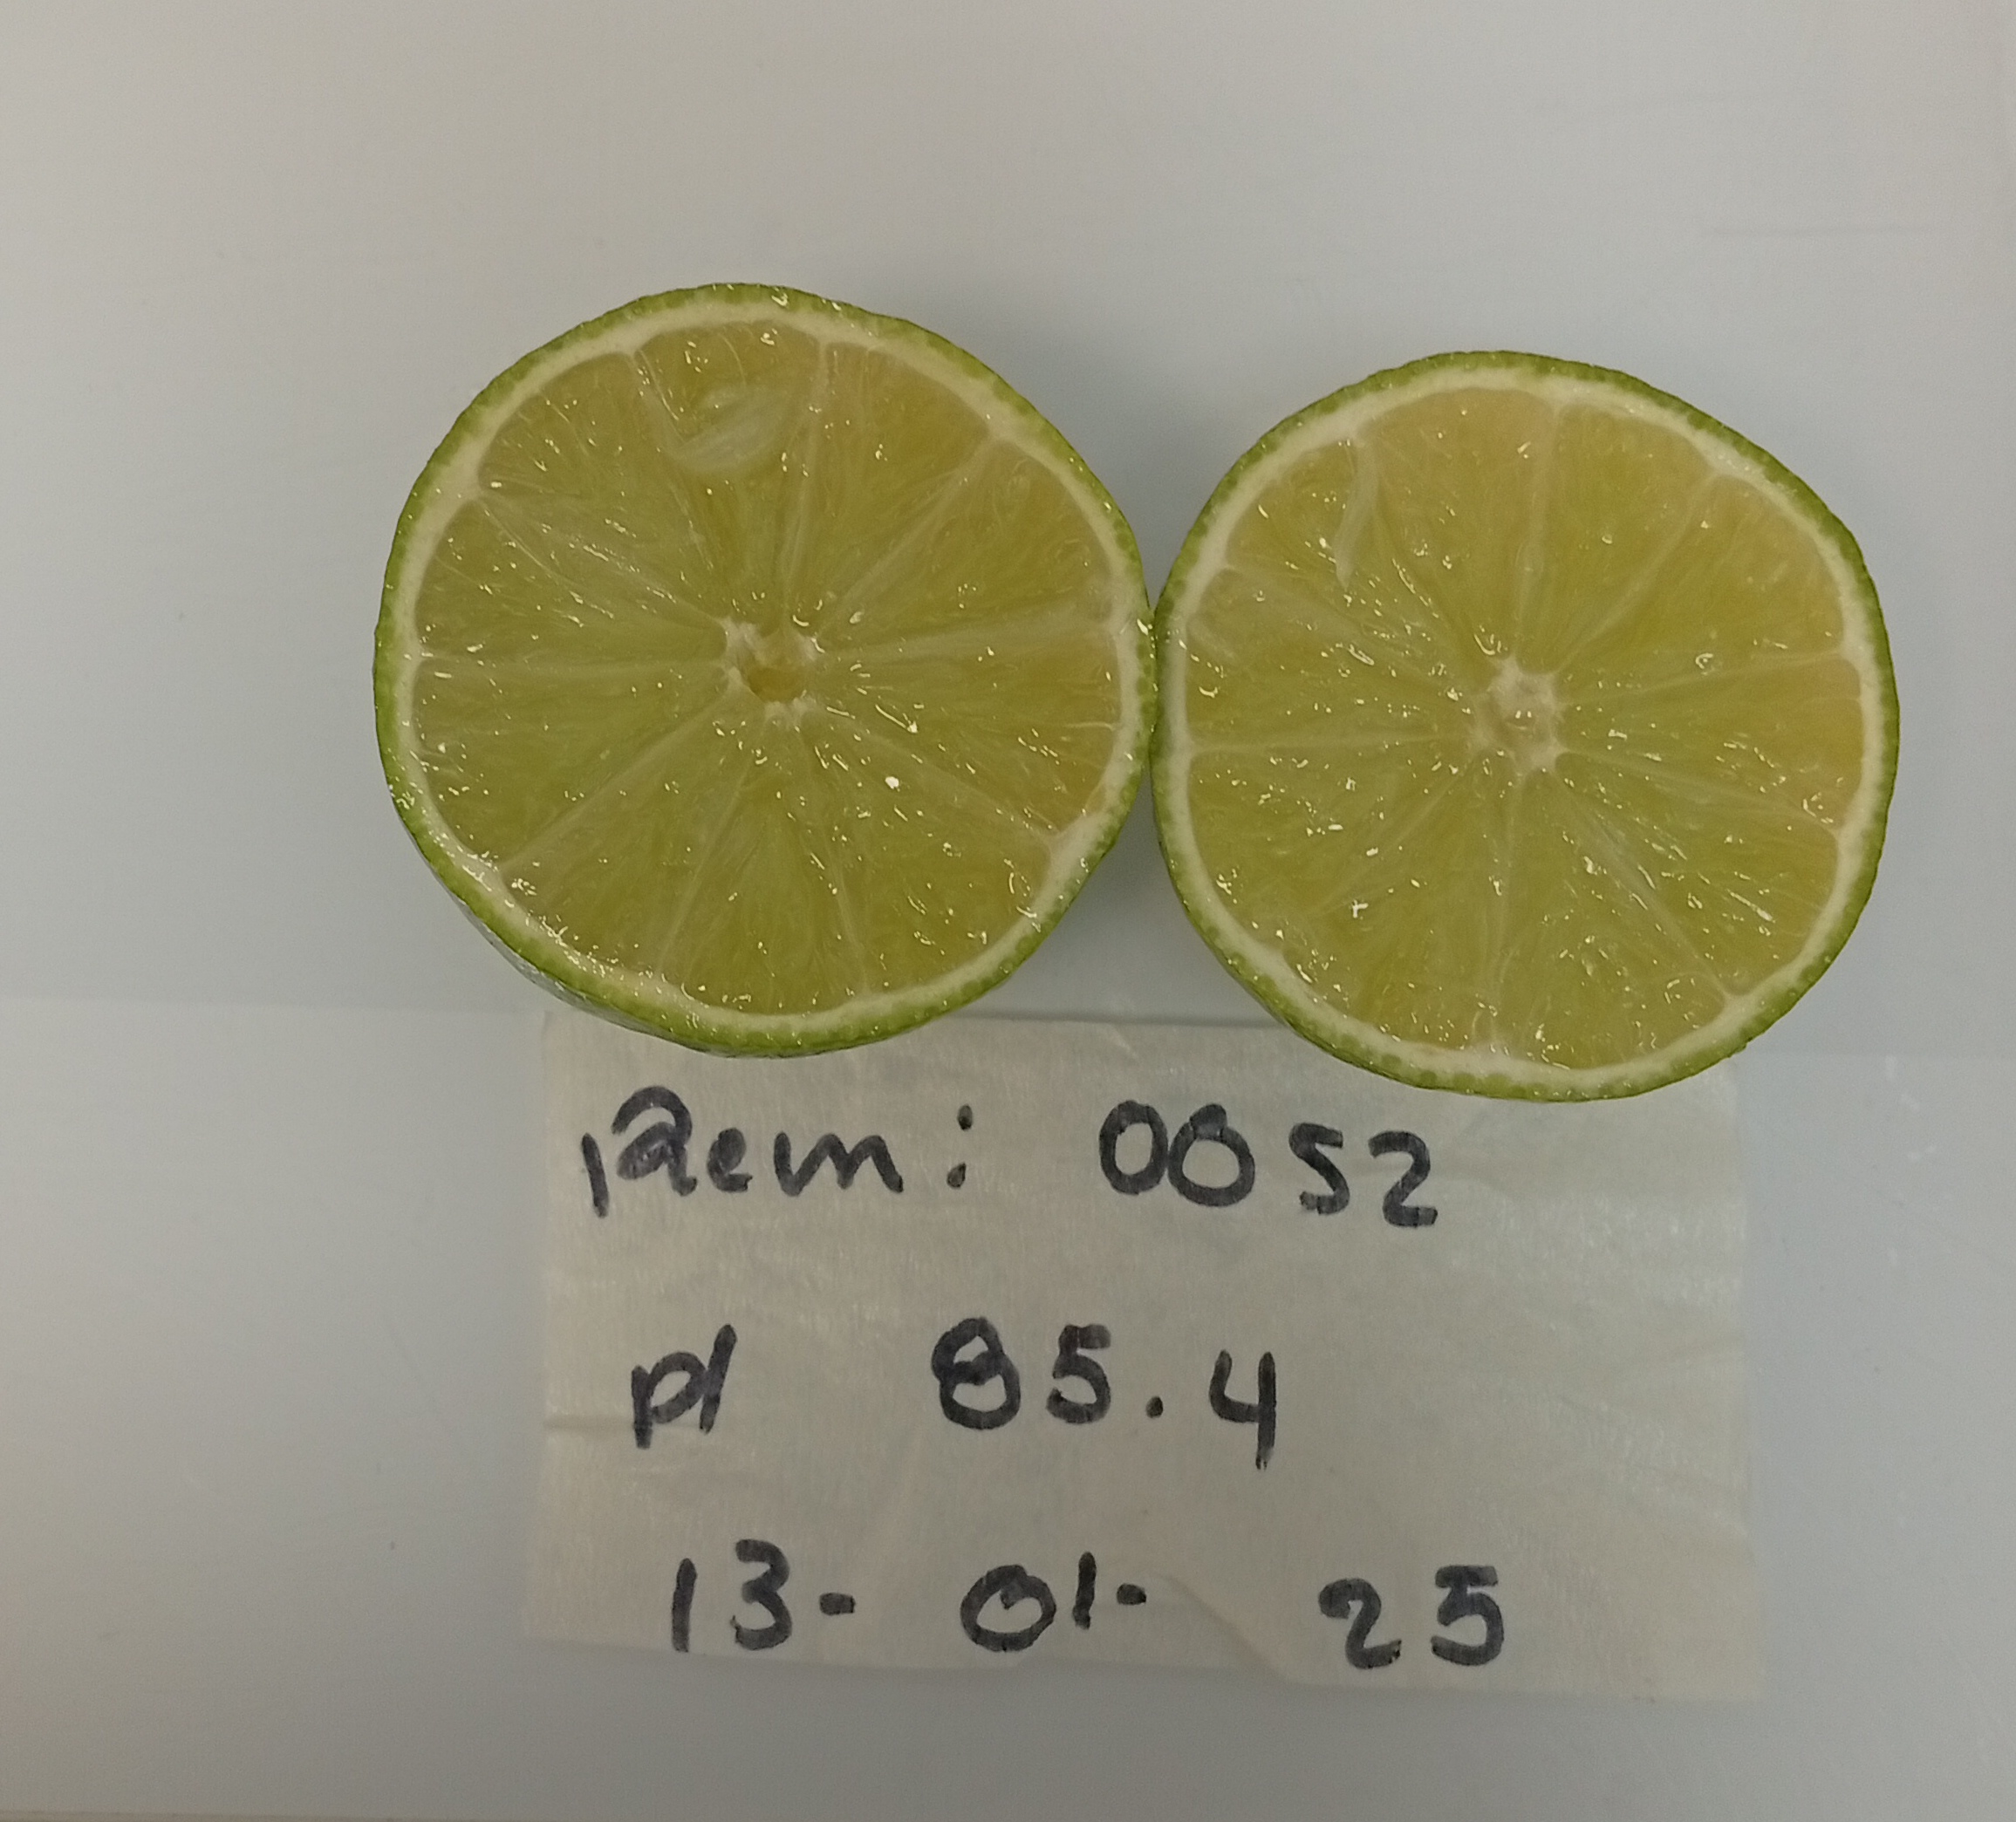 Rem: 0052
pl 85.4
13- 01- 25